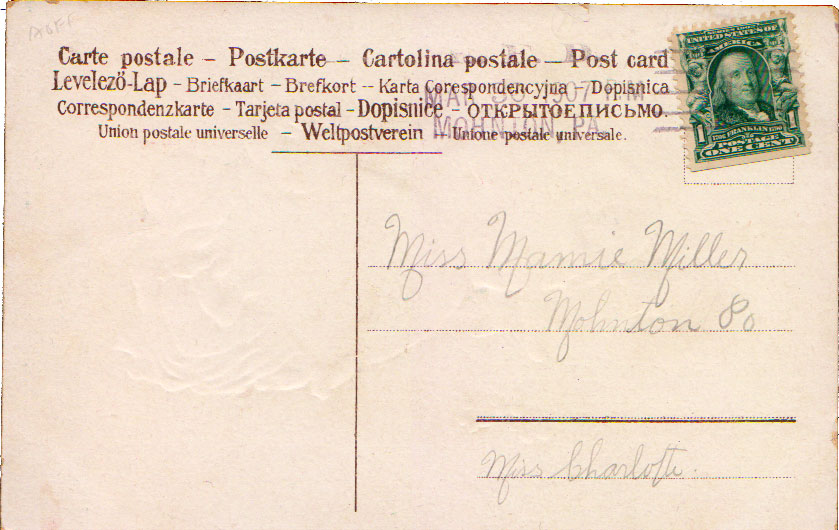 Carte postale – Postkarte – Cartolina postale – Post card
Levelező-Lap – Briefkaart – Brefkort – Karta Corespondencyjna – Dopisnica
Correspondenzkarte – Tarjeta postal – Dopisnice – ОТКРЫТОЕ ПИСЬМО.
Union postale universelle – Weltpostverein – Unione postale universale.
1907
MOHNTON, PA.
UNITED STATES OF
AMERICA
1 FRANKLIN 1
POSTAGE
ONE CENT
Miss Mamie Miller
Mohnton Po
Miss Charlotte.